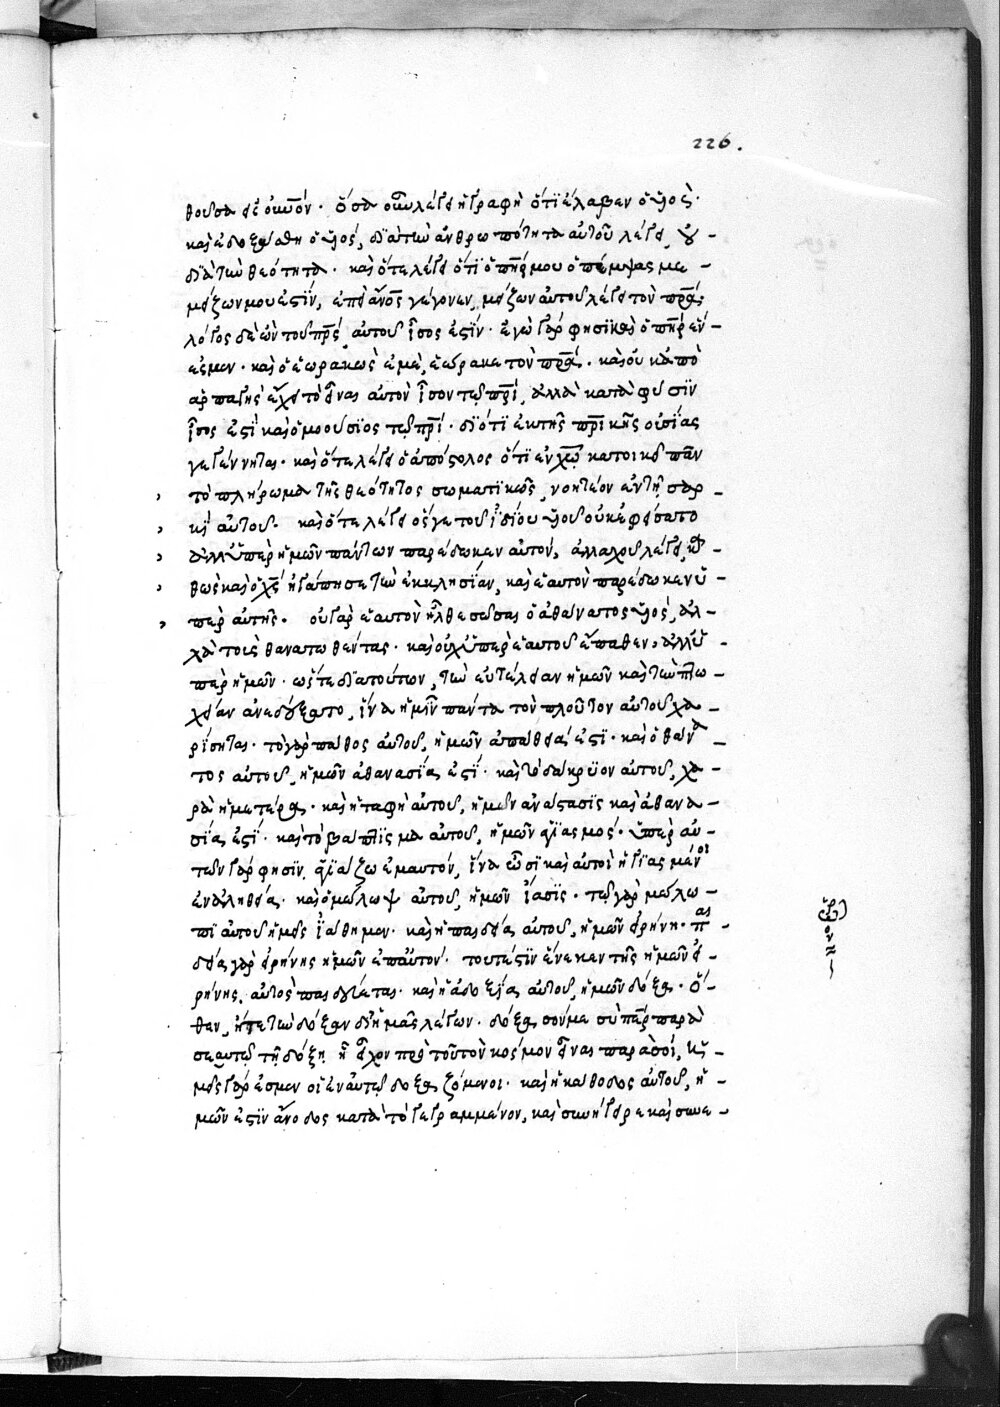 226.
θοῦσα εἰς οἰκουμένην. ὅσα οὖν λέγει ἡ γραφὴ ὅτι ἔλαβεν ὁ υἱὸς
καὶ ἐδοξάσθη ὁ υἱός, διὰ τὴν ἀνθρωπότητα αὐτοῦ λέγει, οὐ
διὰ τὴν θεότητα. καὶ ὅτε λέγει ὅτι ὁ πηρ μου ὁ πέμψας με
μείζων μου ἐστίν, ἐπεὶ ἄνος γέγονεν, μείζων αὐτοῦ λέγει τὸν πρα,
λόγος δὲ ὢν τοῦ πρς, αὐτοῦ ἴσος ἐστίν. ἐγὼ γάρ φησι καὶ ὁ πηρ ἕν
ἐσμεν. καὶ ὁ ἑωρακὼς ἐμέ, ἑώρακε τὸν πρα. καὶ οὐκ ἀπὸ
ἁρπαγῆς εἶχε τὸ εἶναι αὐτὸν ἴσον τῷ πρι, ἀλλὰ κατὰ φύσιν
ἴσος ἐστὶ καὶ ὁμοούσιος τῷ πρι. διότι ἐκ τῆς πρικῆς οὐσίας
γεγέννηται. καὶ ὅτε λέγει ὁ ἀπόστολος ὅτι ἐν χω κατοικεῖ πᾶν
τὸ πλήρωμα τῆς θεότητος σωματικῶς, νοητέον ἐν τῇ σαρ
κὶ αὐτοῦ. καὶ ὅτε λέγει ὅς γε τοῦ ἰδίου υἱοῦ οὐκ ἐφείσατο
ἀλλ' ὑπὲρ ἡμῶν πάντων παρέδωκεν αὐτόν, ἀλλαχοῦ λέγει, κα
θὼς καὶ ὁ χς ἠγάπησε τὴν ἐκκλησίαν, καὶ ἑαυτὸν παρέδωκεν ὑ
πὲρ αὐτῆς. οὐ γὰρ ἑαυτὸν ἦλθε σῶσαι ὁ ἀθάνατος υἱός, ἀλ
λὰ τοὺς θανατωθέντας. καὶ οὐχ ὑπὲρ ἑαυτοῦ ἔπαθεν, ἀλλ' ὑ
πὲρ ἡμῶν. ὥστε διὰ τοῦτον, τὴν εὐτέλειαν ἡμῶν καὶ τὴν πτω
χείαν ἀνεδέξατο, ἵνα ἡμῖν πάντα τὸν πλοῦτον αὐτοῦ χα
ρίσηται. τὸ γὰρ πάθος αὐτοῦ, ἡμῶν ἀπάθεια ἐστι. καὶ ὁ θάνα
τος αὐτοῦ, ἡμῶν ἀθανασία ἐστι. καὶ τὸ δάκρυον αὐτοῦ, χα
ρὰ ἡμετέρα. καὶ ἡ ταφὴ αὐτοῦ, ἡμῶν ἀνάστασις καὶ ἀθανα
σία ἐστι. καὶ τὸ βάπτισμα αὐτοῦ, ἡμῶν ἁγιασμός. ὑπὲρ αὐ
τῶν γάρ φησιν, ἁγιάζω ἐμαυτόν, ἵνα ὦσι καὶ αὐτοὶ ἡγιασμένοι
ἐν ἀληθεία. καὶ ὁ μώλωψ αὐτοῦ, ἡμῶν ἴασις. τῷ γὰρ μώλω
πι αὐτοῦ ἡμεῖς ἰάθημεν. καὶ ἡ παιδεία αὐτοῦ, ἡμῶν εἰρήνη. παι
δεία γὰρ εἰρήνης ἡμῶν ἐπ' αὐτόν. τουτέστιν ἕνεκεν τῆς ἡμῶν εἰ
ρήνης, αὐτὸς παιδεύεται. καὶ ἡ ἀδοξία αὐτοῦ, ἡμῶν δόξα. ὅ
θεν, ᾔτει τὴν δόξαν δι' ἡμᾶς λέγων. δόξασόν με σὺ πηρ παρὰ
σεαυτῷ τῇ δόξῃ ᾗ εἶχον πρὸ τοῦ τὸν κόσμον εἶναι παρὰ σοί, ἡ
μεῖς γάρ ἐσμεν οἱ ἐν αὐτῷ δοξαζόμενοι. καὶ ἡ κάθοδος αὐτοῦ, ἡ
μῶν ἐστιν ἄνοδος κατὰ τὸ γεγραμμένον, καὶ συνήγειρε καὶ συνε